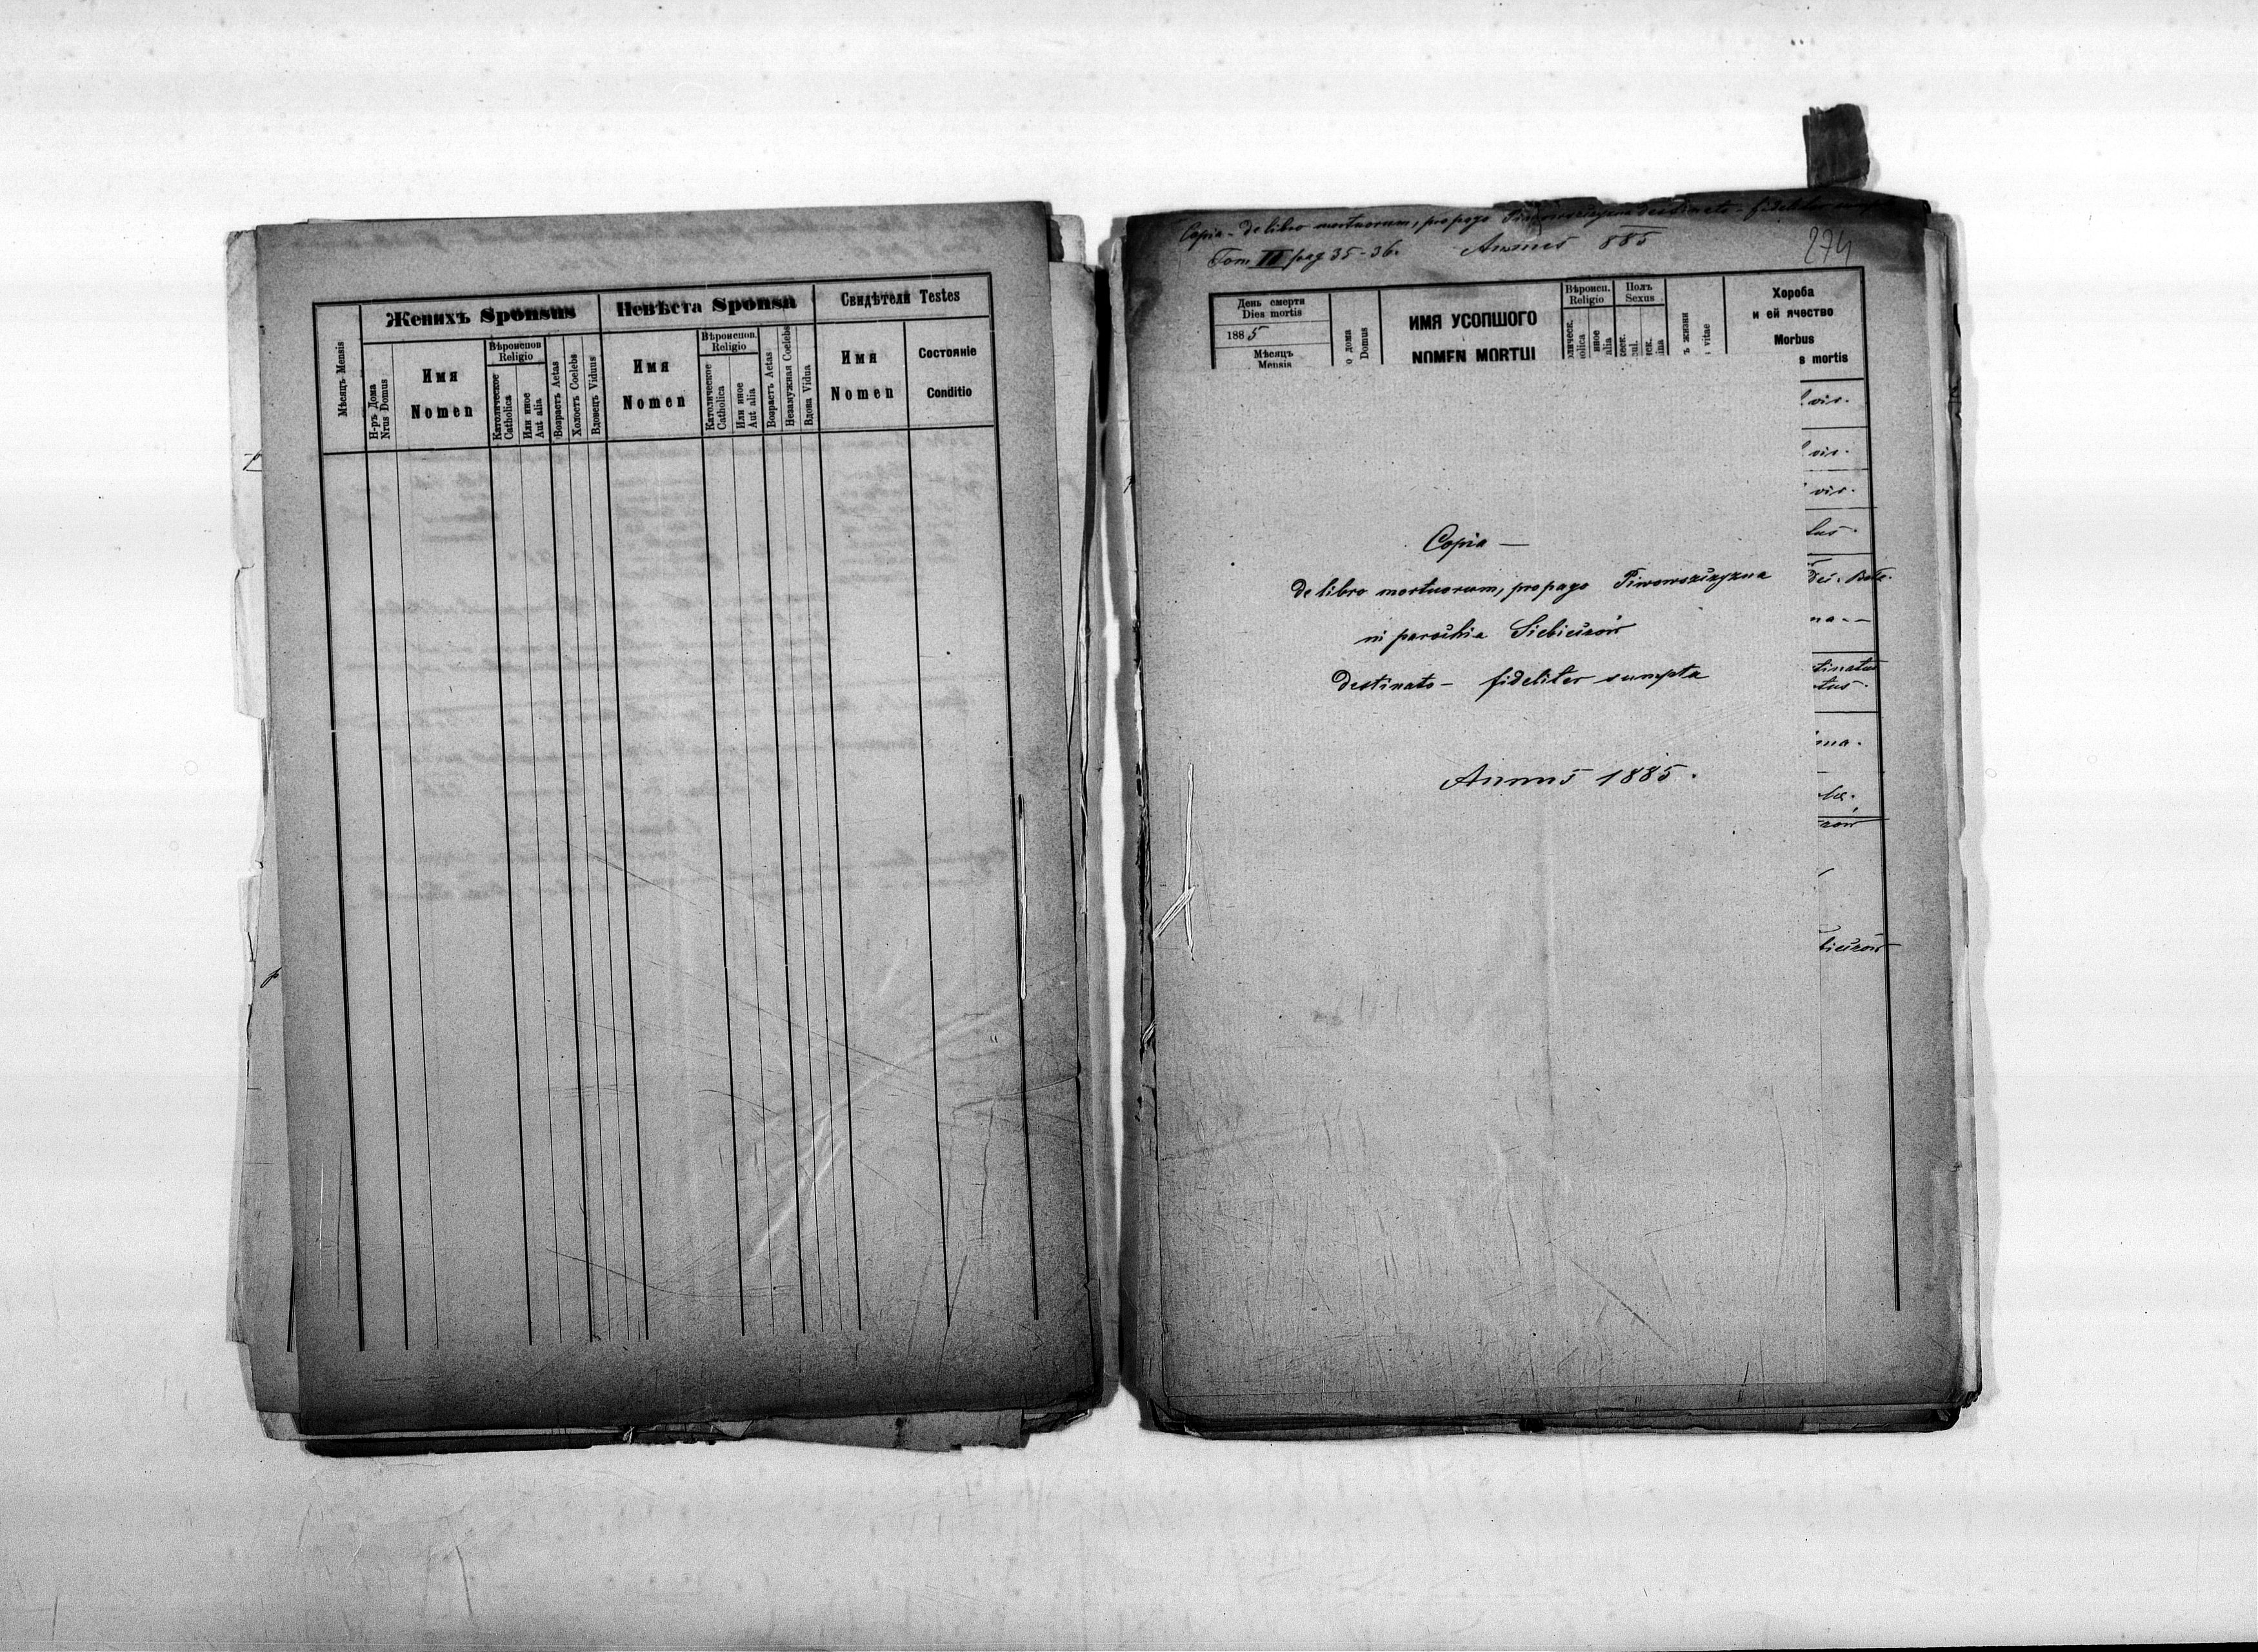 Женихъ Sponsus
Невѣста Sponsa
Свидѣтели Testes
Мѣсяцъ Mensis
Н-ръ Дома
Nrus Domus
Имя
Nomen
Вѣроиспов
Religio
Католическое
Catholica
Или иное
Aut alia
Возрастъ Aetas
Холостъ Coelebs
Вдовецъ Viduus
Имя
Nomen
Вѣроиспов.
Religio
Католическое
Catholica
Или иное
Aut alia
Возрастъ Aetas
Незамужная Coelebs
Вдова Vidua
Имя
Nomen
Состояніе
Conditio
Copia - de libro mortuorum, pro pago destinato - fideliter
Tom III pag 35-36. Annus 885
274
День смерти
Dies mortis
1885
Мѣсяцъ
Mensis
о дома
Domus
ИМЯ УСОПШОГО
NOMEN MORTUI
Вѣроисп.
Religio
олическ.
olica
иное
alia
Полъ
Sexus
ъ жизни
vitae
Хороба
и ей ячество
Morbus
s mortis
vis.
vis.
vis.
tus.
na -
tinatus
tus.
ma.
Copia —
de libro mortuorum, pro pago Piwowszczyzna
in parochia Siebieczów
destinato - fideliter sumpta
Annus 1885.